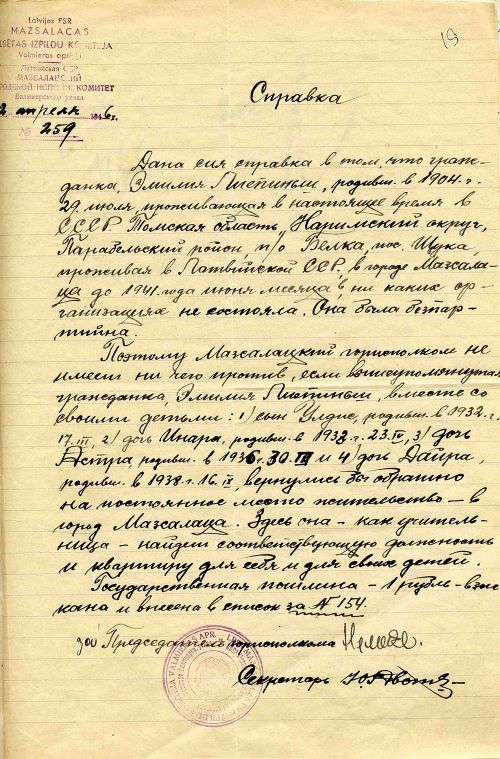 Latvijas PSR
MAZSALACAS
PILSĒTAS IZPILDU KOMITEJA
Valmieras apriņķī
Латвийская ССР
МАЗСАЛАЦСКИЙ
ГОРОДСКОЙ ИСПОЛН. КОМИТЕТ
Валмиерского уезда
2 апреля 1946 г.
№ 259.
19
Справка
Дана сия справка в том, что граж-
данка, Эмилия Лиепиньш, родивш. в 1904. г.
29. июля, проживающая в настоящее время в
СССР, Томская область, Нарымский округ,
Парабельский район, п/о Белка, пос. Щука,
проживая в Латвийской ССР, в городе Мазсала-
ца до 1941. года июня месяца, в ни каких ор-
ганизациях не состояла. Она была безпар-
тийна.
Поэтому Мазсалацкий горисполком не
имеет ни чего против, если вышеупомянутая
гражданка, Эмилия Лиепиньш, вместе со
своими детьми: 1) сын Улдис, родивш. в 1932. г.
17. III, 2) дочь Инара, родивш. в 1933. 23. IV, 3) дочь
Астра, родивш. в 1936. 30. и 4) дочь Дайра,
родивш. в 1938. г. 16. IX, вернулись бы обратно
на постоянное место жительство – в
город Мазсалаца. Здесь она – как учитель-
ница – найдет соответствующую должность
и квартиру для себя и для своих детей.
Государственная пошлина – 1 рубль – взыс-
кана и внесена в список за № 154.
Председатель горисполкома
Секретарь